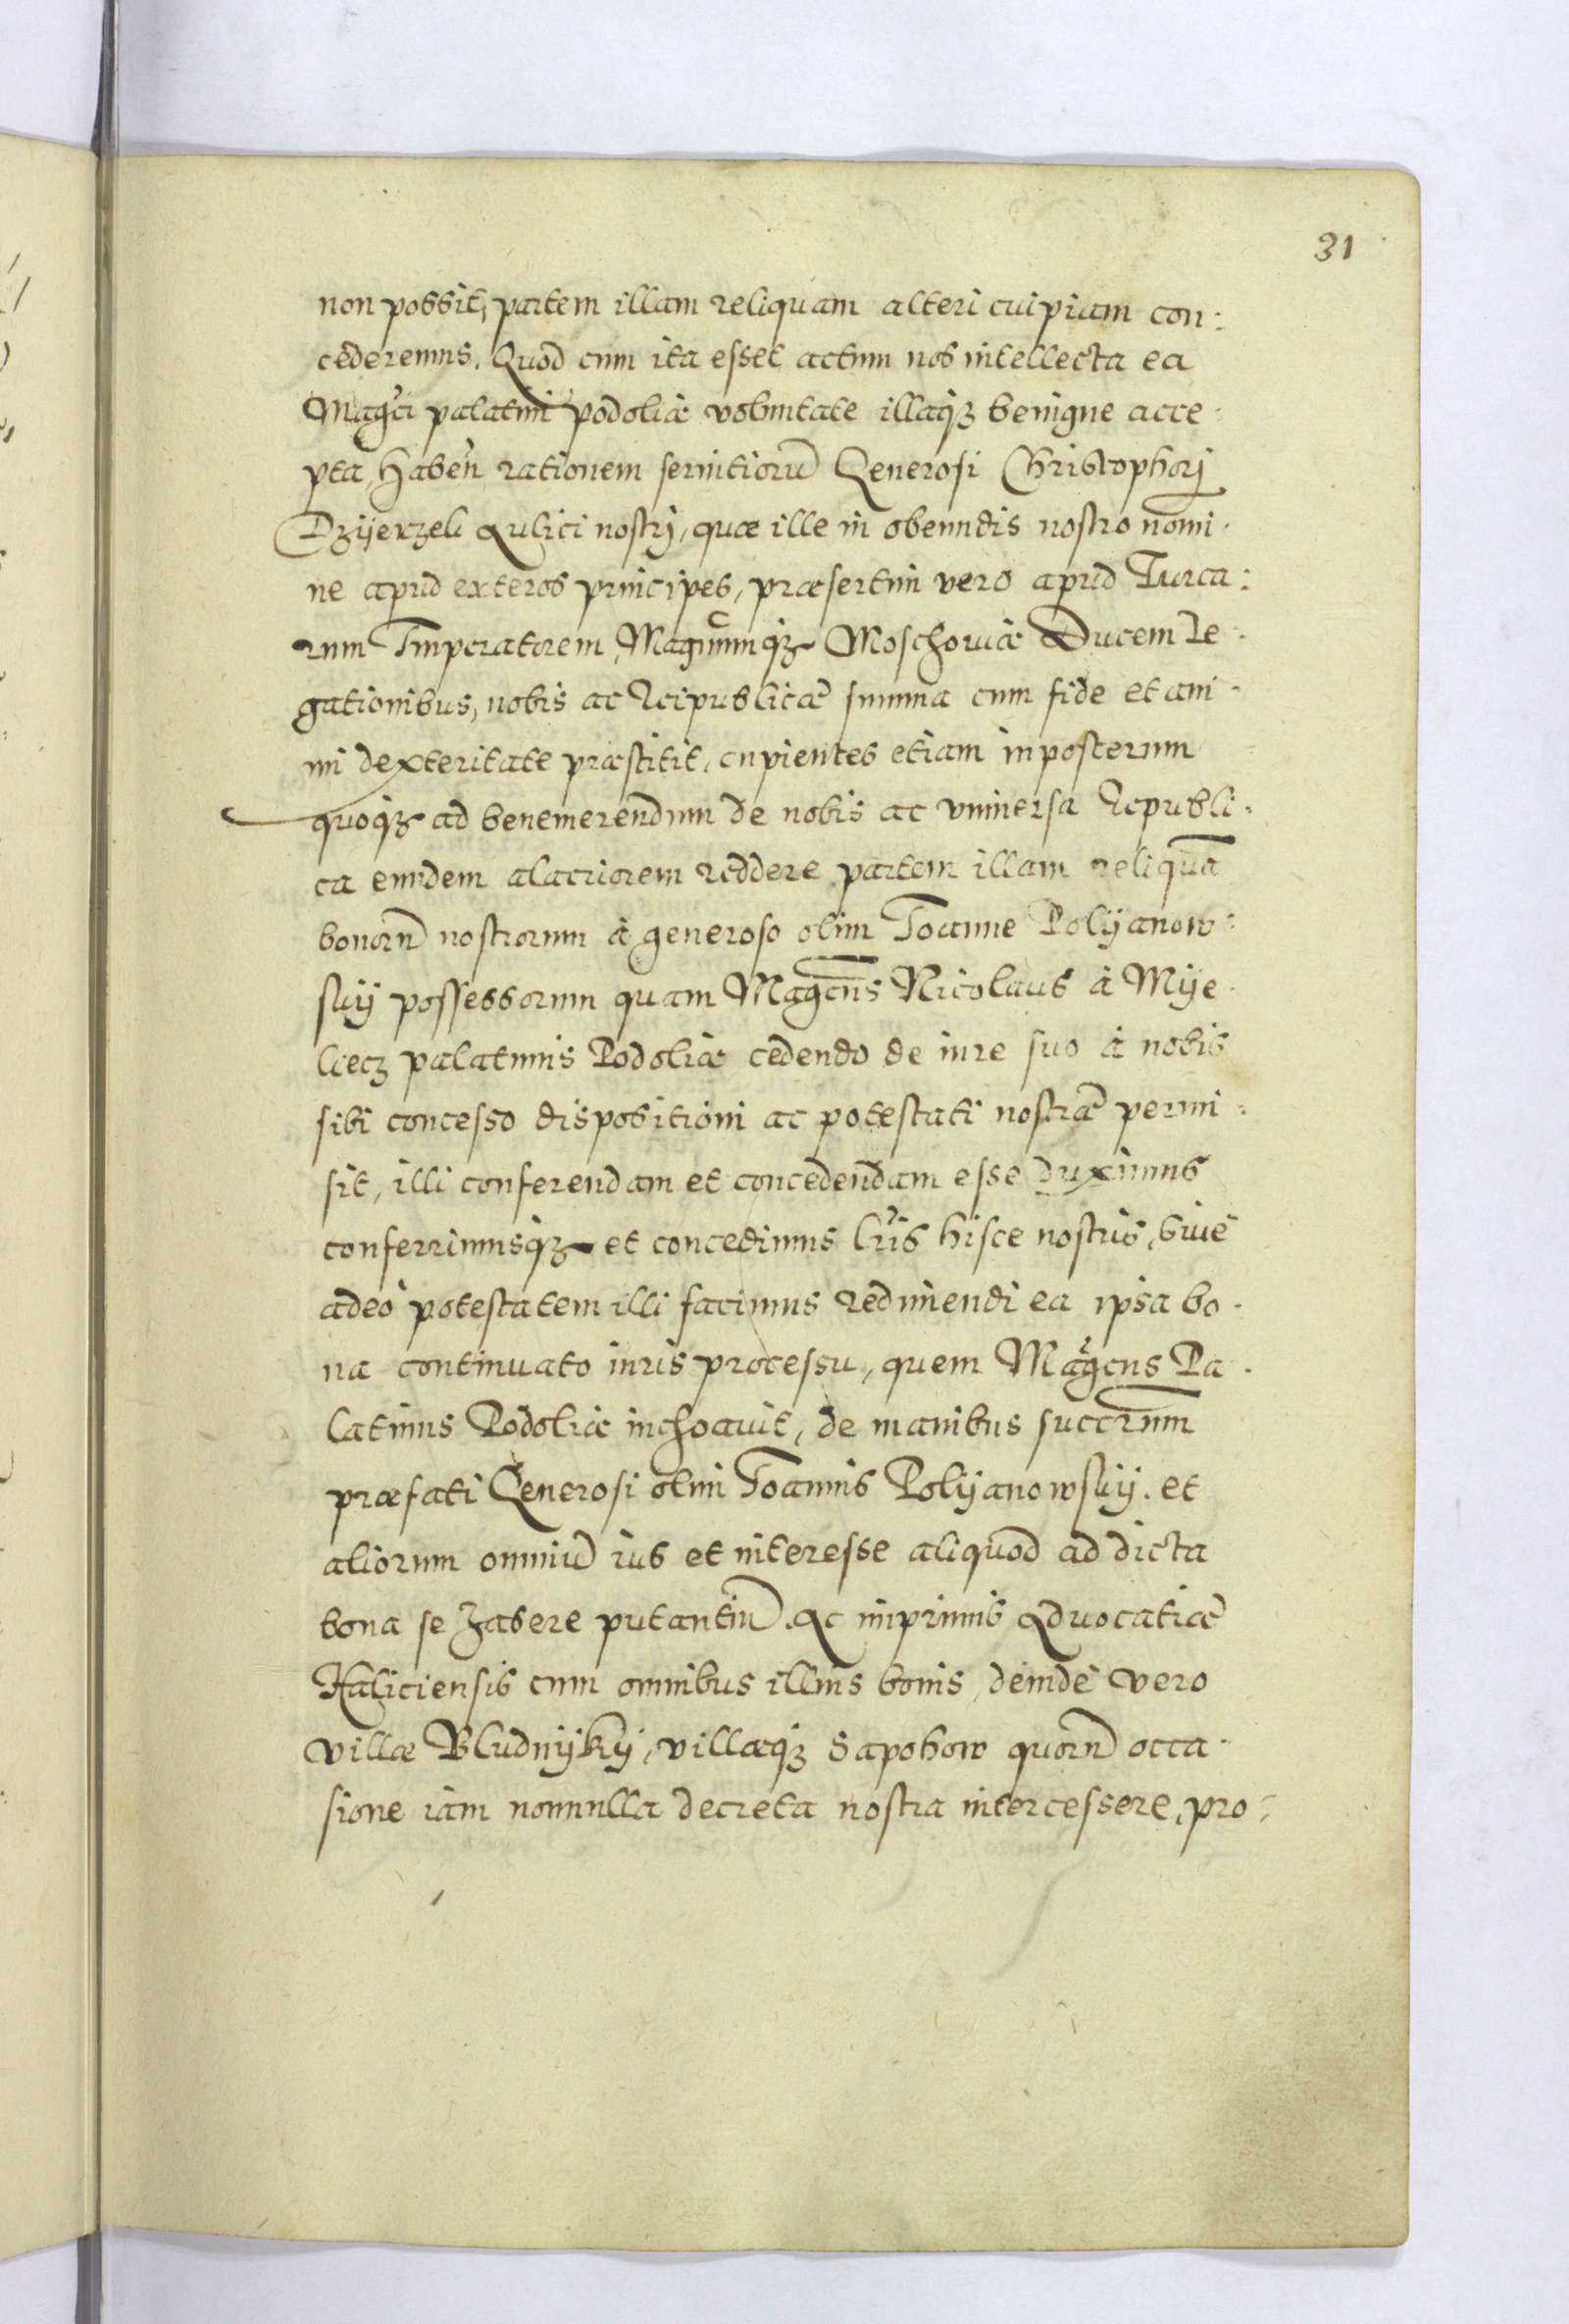 31
non possit, partem illam reliquam alteri cuipiam con:
cederemus. Quod cum ita esset actum nos intellecta ea
Magci palatini podoliæ voluntate illaqȝ benigne acce-
pta, Haben rationem seruitiorũ Generosi Christophorj
Dzijerzeli Aulici nostrj, quæ ille in obeundis nostro nomi-
ne apud exteros principes, præsertim vero apud Turca:
rum Imperatorem, Magnumqȝ Moschouiæ Ducem le-
gationibus, nobis ac Reipublicæ summa cum fide et ani-
mi dexteritate præstitit, cupientes etiam inposterum
quoqȝ ad benemerendum de nobis ac vniuersa Republi-
ca eundem alacriorem reddere partem illam reliquã
bonorũ nostrorum à generoso olim Joanne Polijanow-
skij possessorum quam Magcus Nicolaus à Mije-
liecz palatinus Podoliæ cedendo de iure suo à nobis
sibi concesso dispositioni ac potestati nostræ permi-
sit, illi conferendam et concedendam esse duximus
conferrimusqȝ et concedimus lris hisce nostris, siue
adeo potestatem illi facimus redimendi ea ipsa bo-
na continuato iuris processu, quem Magcus Pa-
latinus Podoliæ inchoauit, de manibus succrum
præfati Generosi olim Joannis Polijanowskij. et
aliorum omniũ ius et interesse aliquod ad dicta
bona se habere putantiũ. Ac inprimis Aduocatiæ
Haliciensis cum omnibus illius bonis, deinde vero
villæ Bludnijkij, villæqȝ Sapohow quorũ occa-
sione iam nonnulla decreta nostra intercessere, pro-